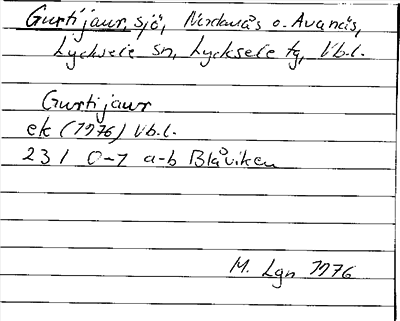 Gurtijaur, sjö, Nordanås o. Avanäs,
Lycksele sn, Lycksele tg, Vb.l.
Gurtijaur
ek (1976) Vb.l.
23 I 0-1 a-b Blåviken
M. Lgn 1976